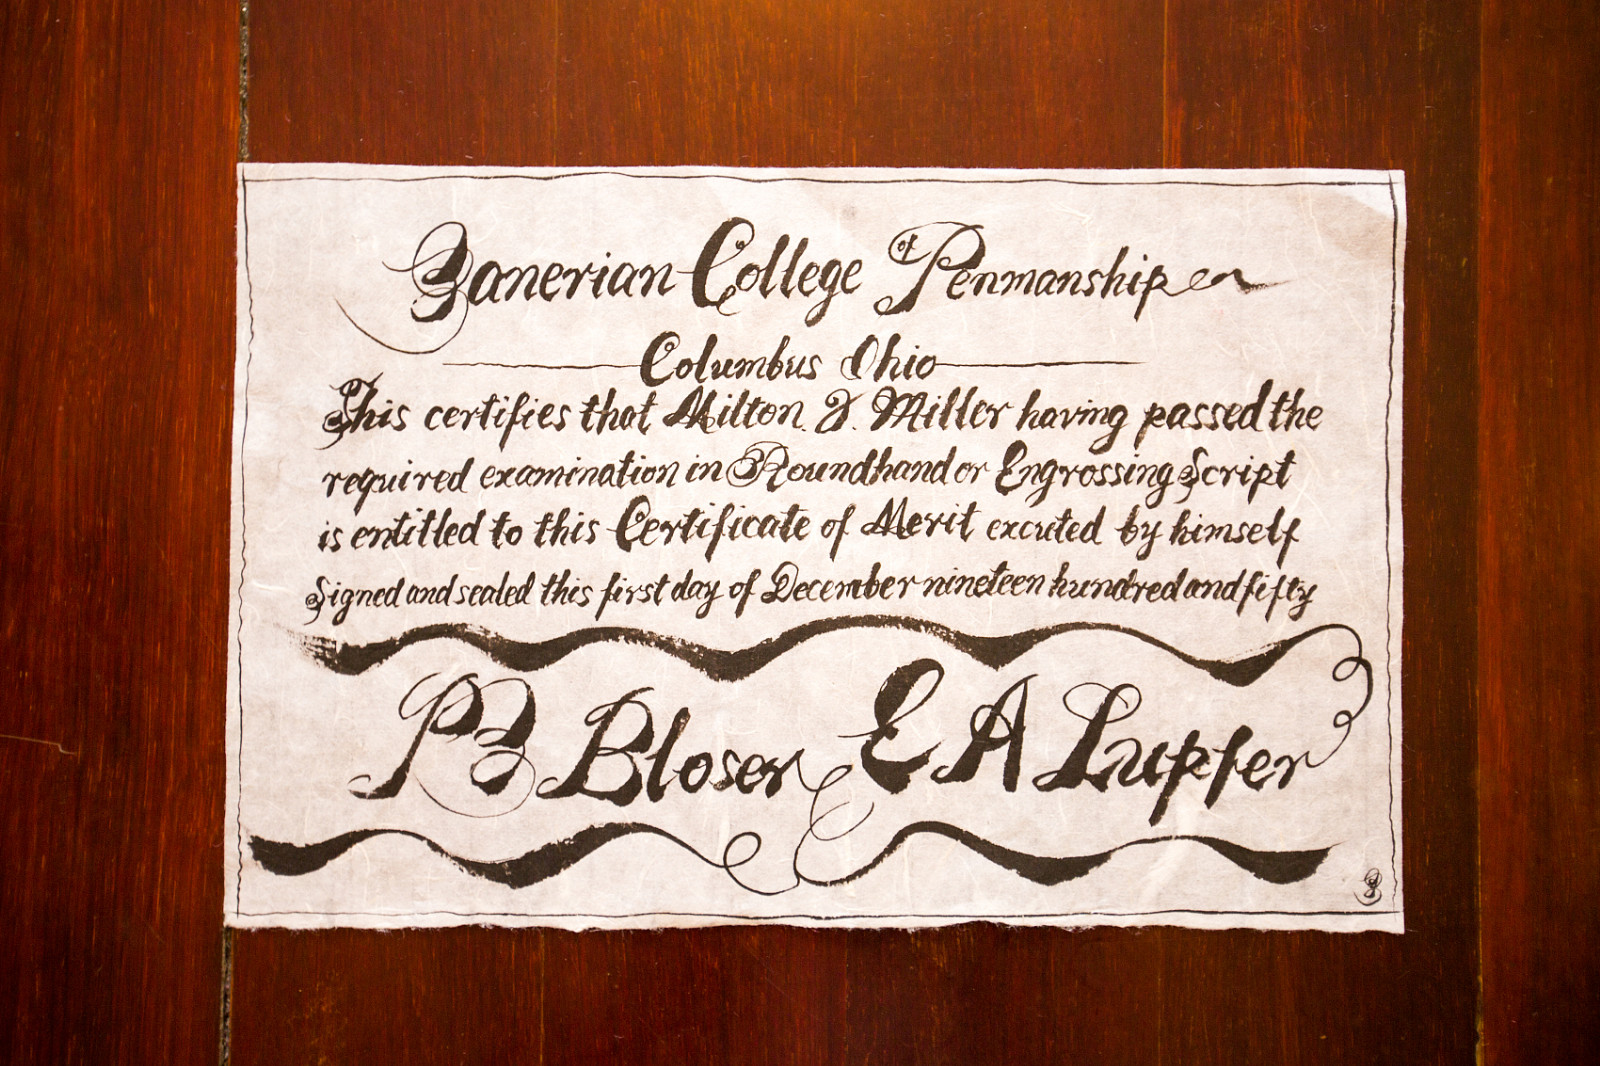 Zanerian College of Penmanship
Columbus Ohio
This certifies that Milton. Miller having passed the
required examination in Roundhand or Engrossing Script
is entitled to this Certificate of Merit excuted by himself
Signed and sealed this first day of December nineteen hundred and fifty
P Z Bloser E A Lupfer